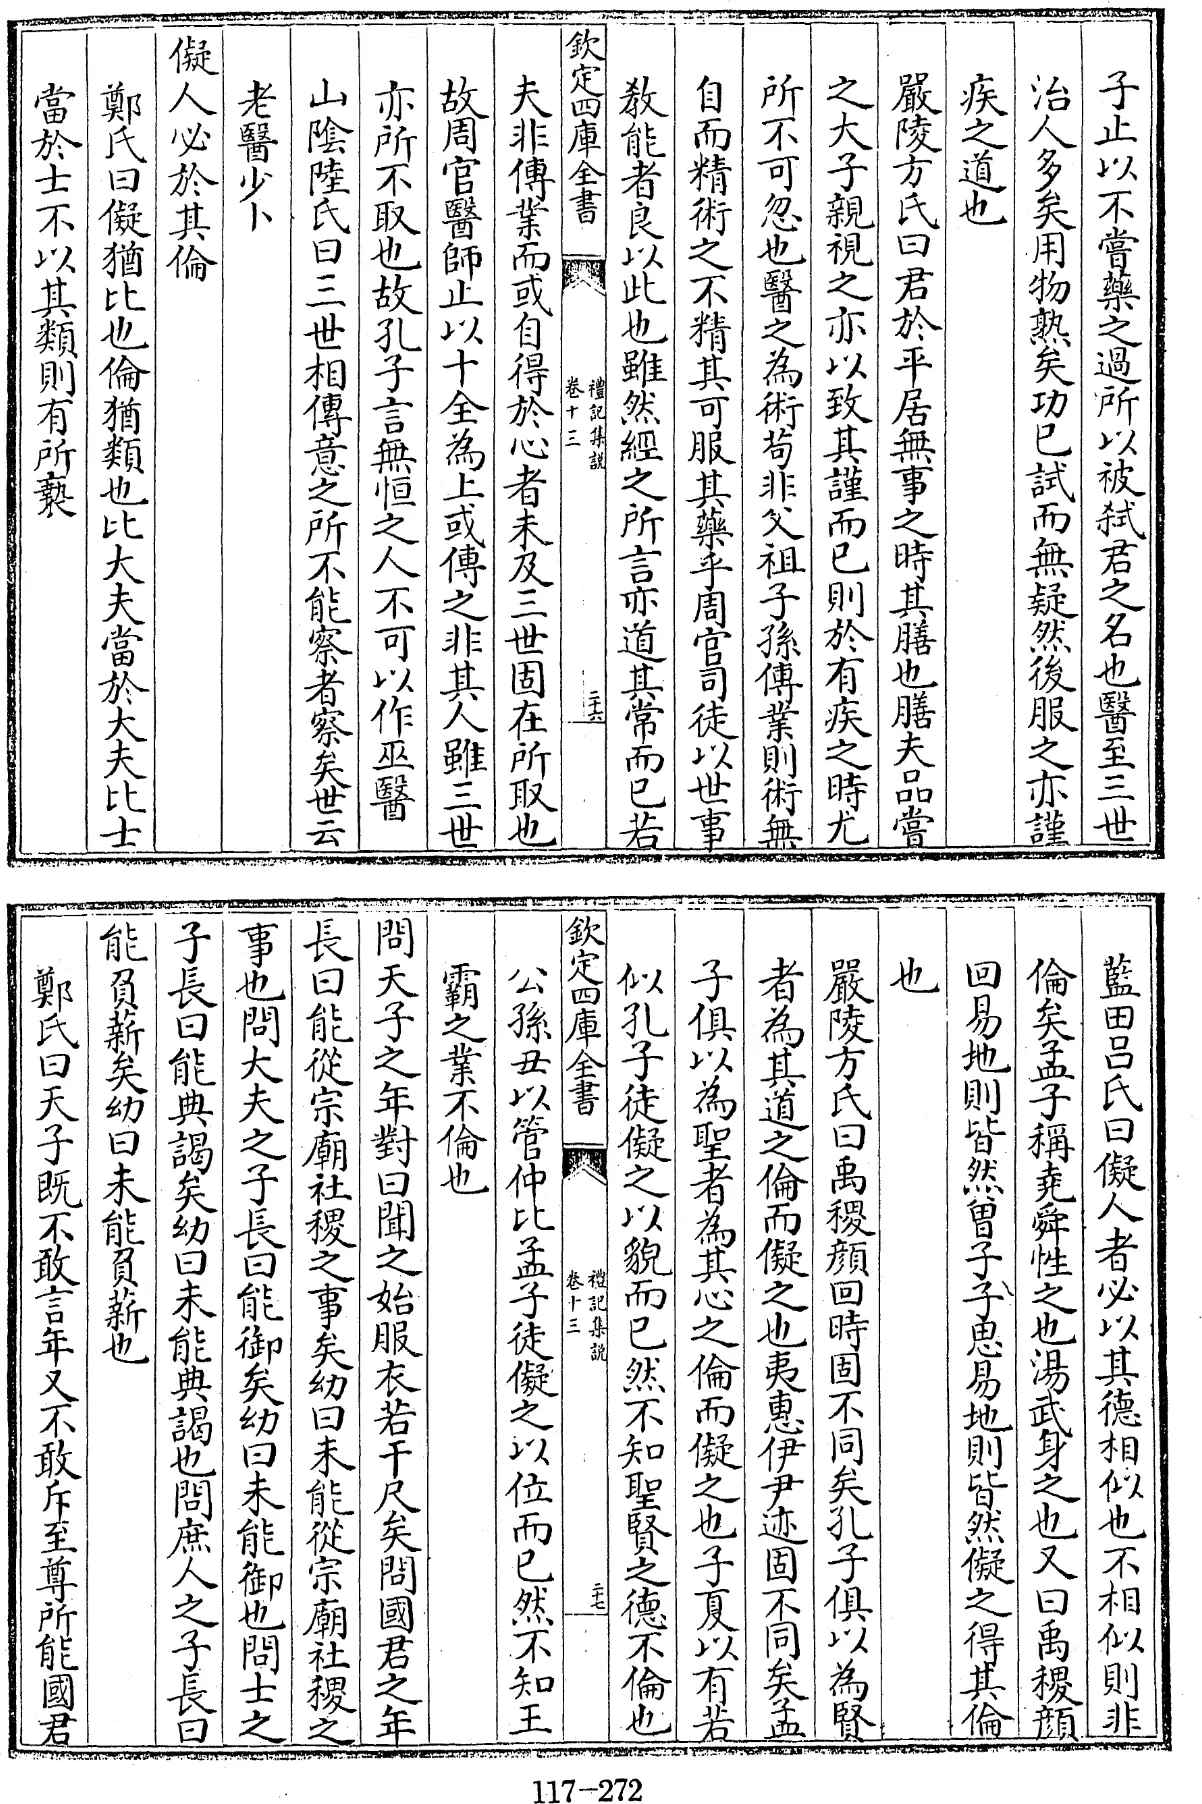 子止以不嘗藥之過所以被弑君之名也醫至三世
治人多矣用物熟矣功已試而無疑然後服之亦謹
疾之道也
嚴陵方氏曰君於平居無事之時其膳也膳夫品嘗
之大子親視之亦以致其謹而已則於有疾之時尤
所不可忽也醫之為術苟非父祖子孫傳業則術無
自而精術之不精其可服其藥乎周官司徒以世事
教能者良以此也雖然經之所言亦道其常而已若
欽定四庫全書
禮記集說
卷十三
二十六
夫非傳業而或自得於心者未及三世固在所取也
故周官醫師止以十全為上或傳之非其人雖三世
亦所不取也故孔子言無恒之人不可以作巫醫
山陰陸氏曰三世相傳意之所不能察者察矣世云
老醫少卜
儗人必於其倫
鄭氏曰儗猶比也倫猶類也比大夫當於大夫比士
當於士不以其類則有所褻
藍田呂氏曰儗人者必以其德相似也不相似則非
倫矣孟子稱堯舜性之也湯武身之也又曰禹稷顔
回易地則皆然曽子子思易地則皆然儗之得其倫
也
嚴陵方氏曰禹稷顔回時固不同矣孔子俱以為賢
者為其道之倫而儗之也夷惠伊尹迹固不同矣孟
子俱以為聖者為其心之倫而儗之也子夏以有若
似孔子徒儗之以貌而已然不知聖賢之德不倫也
欽定四庫全書
禮記集說
卷十三
二十七
公孫丑以管仲比孟子徒儗之以位而已然不知王
霸之業不倫也
問天子之年對曰聞之始服衣若干尺矣問國君之年
長曰能從宗廟社稷之事矣幼曰未能從宗廟社稷之
事也問大夫之子長曰能御矣幼曰未能御也問士之
子長曰能典謁矣幼曰未能典謁也問庶人之子長曰
能負薪矣幼曰未能負薪也
鄭氏曰天子既不敢言年又不敢斥至尊所能國君
117-272